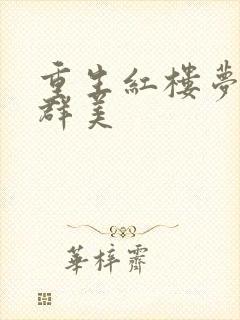 重生紅樓夢
群美
華梓霽